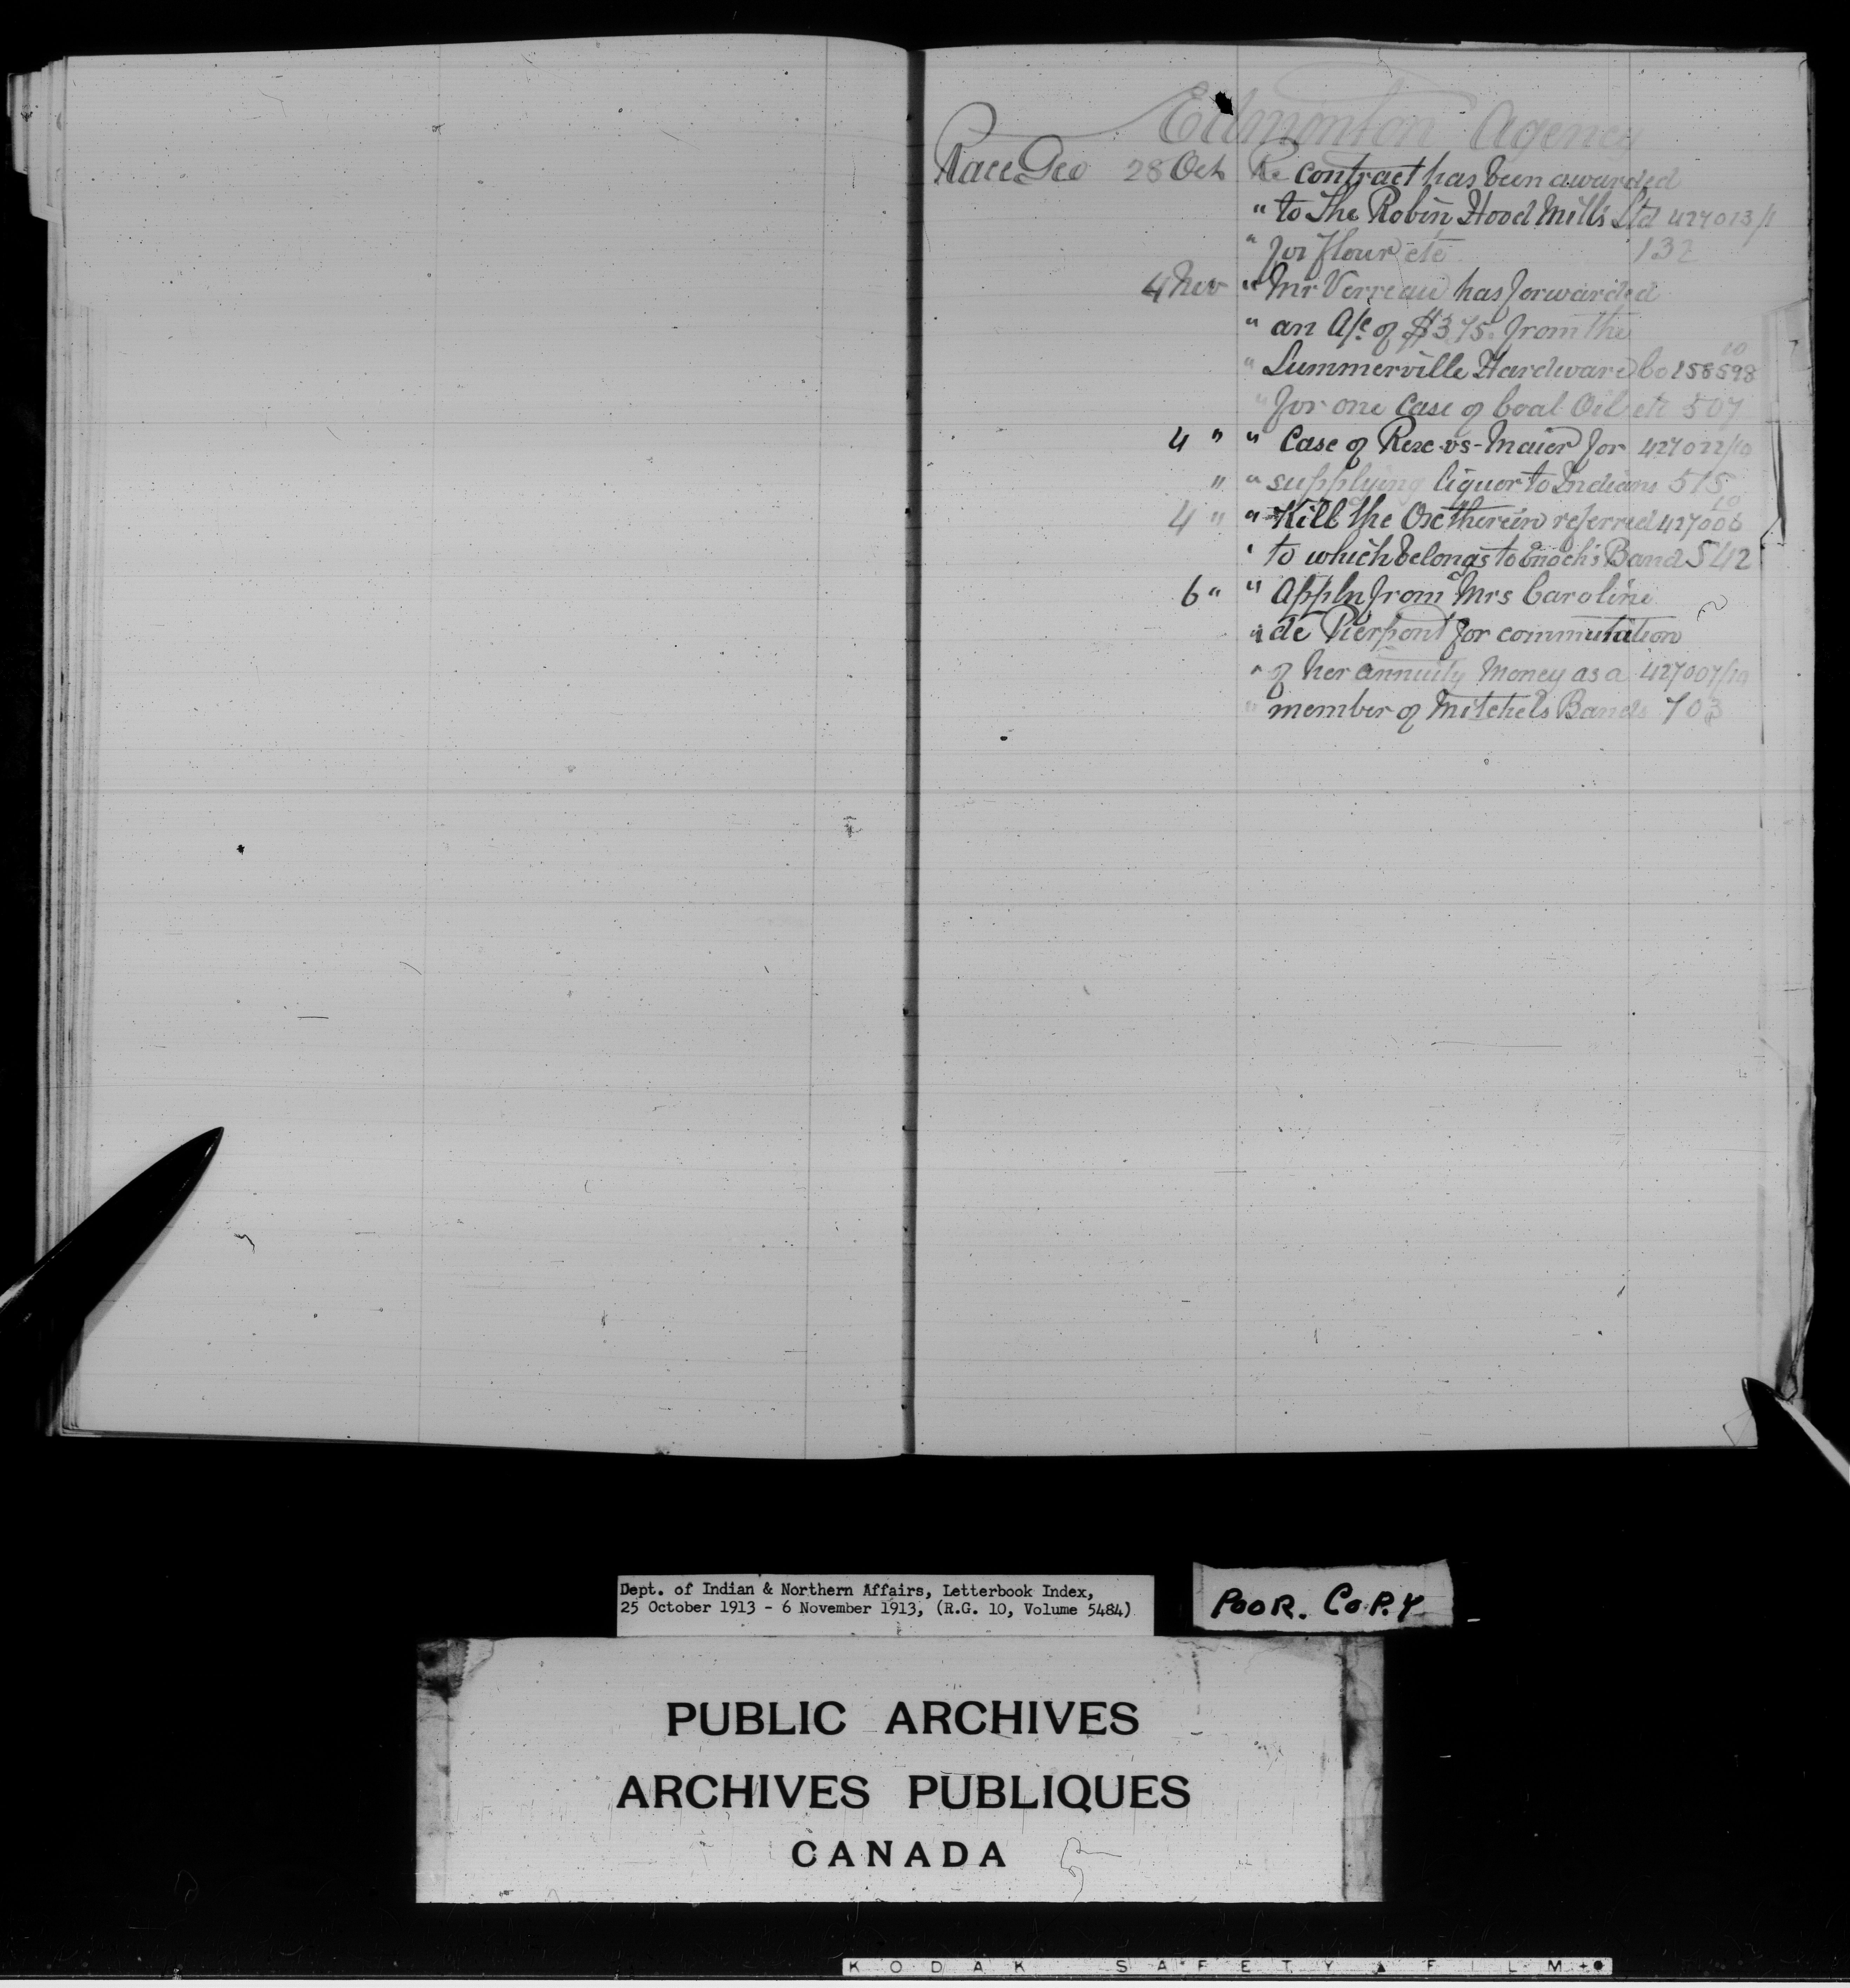 Edmonton Agency
Race Geo 28 Oct Re contract has been awarded
" to The Robin Hood Mills Ltd 427013/1
" for flour etc 132
4 Nov " Mr Verreau has forwarded
" an A/c of $3.75. from the
" Summerville Hardware Co 158598 10
" for one case of Coal Oil etc 507
4 " " Case of Rex -vs- Maier for 427022/10
" " supplying liquor to Indians 515
4 " " Kill the Ox therein referred 427006 10
" to which belongs to Enoch's Band 542
6 " " Appln from Mrs Caroline
" de Pierpont for commutation
" of her annuity money as a 427007/10
" member of Mitchels Band 703
Dept. of Indian & Northern Affairs, Letterbook Index,
25 October 1913 - 6 November 1913, (R.G. 10, Volume 5484)
POOR. COPY
PUBLIC ARCHIVES
ARCHIVES PUBLIQUES
CANADA
KODAK SAFETY FILM